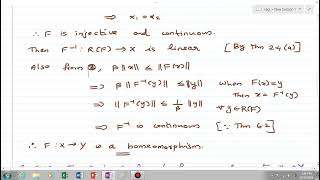 ⇒ x₁ = x₂
∴ F is injective and continuous.
Then F⁻¹: R(F) → X is linear [By thm 2.4(a)]
Also from ②, β ||x|| ≤ ||F(x)||
⇒ β || F⁻¹(y)|| ≤ ||y|| when F(x) = y
⇒ || F⁻¹(y)|| ≤ 1/β ||y|| then x = F⁻¹(y)
∀ y ∈ R(F)
⇒ F⁻¹ is continuous [∵ Thm 6.2]
∴ F: X → Y is a homeomorphism.